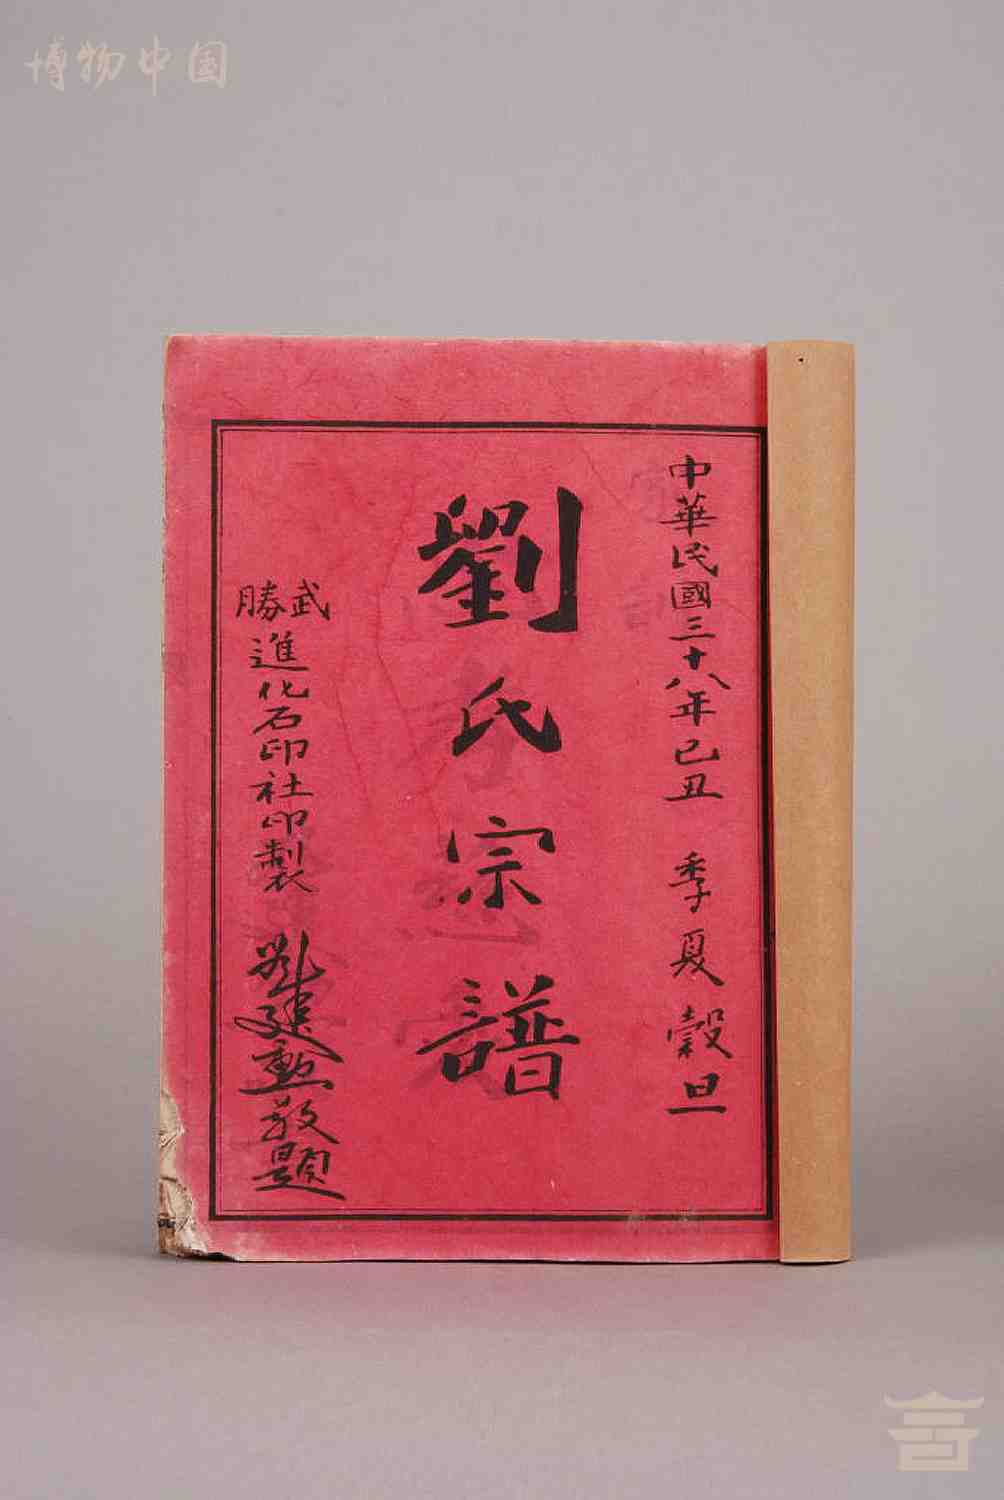 博物中国
中華民國三十八年己丑 季夏 穀旦
劉氏宗譜
武勝
進化石印社印製 劉建勳敬題